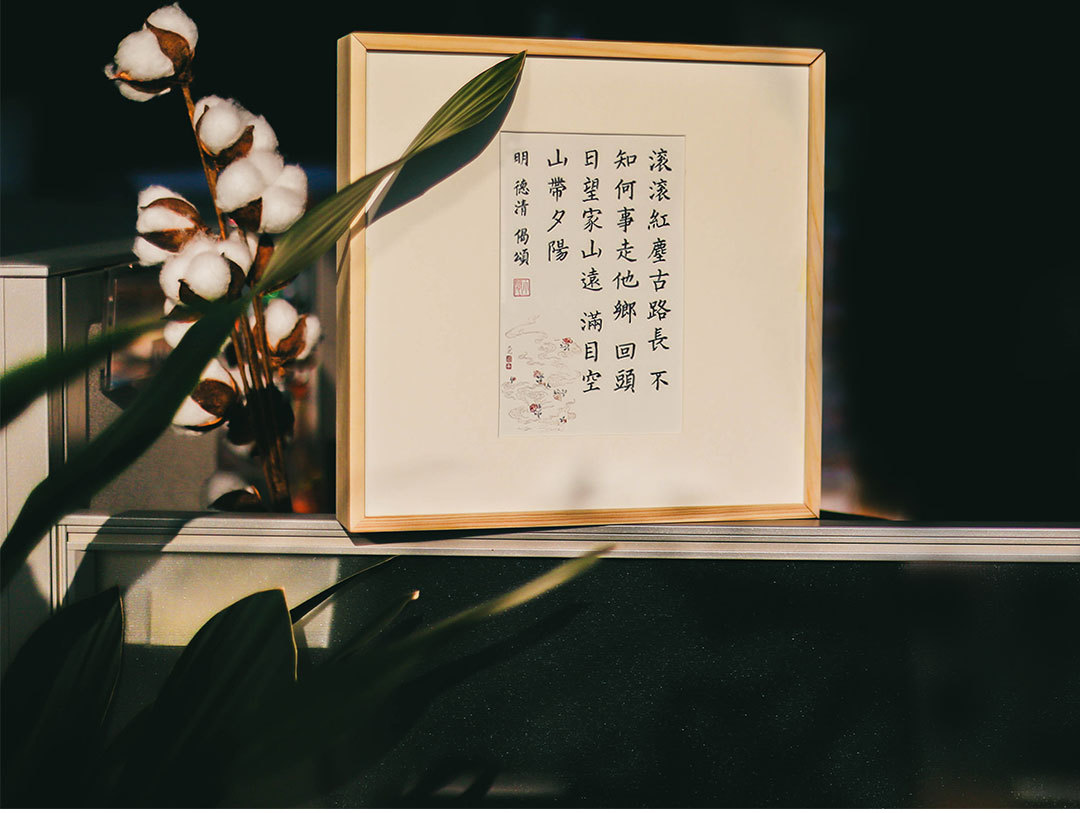 滾滾紅塵古路長 不
知何事走他鄉 回頭
日望家山遠 滿目空
山帶夕陽
明 德清 偈頌